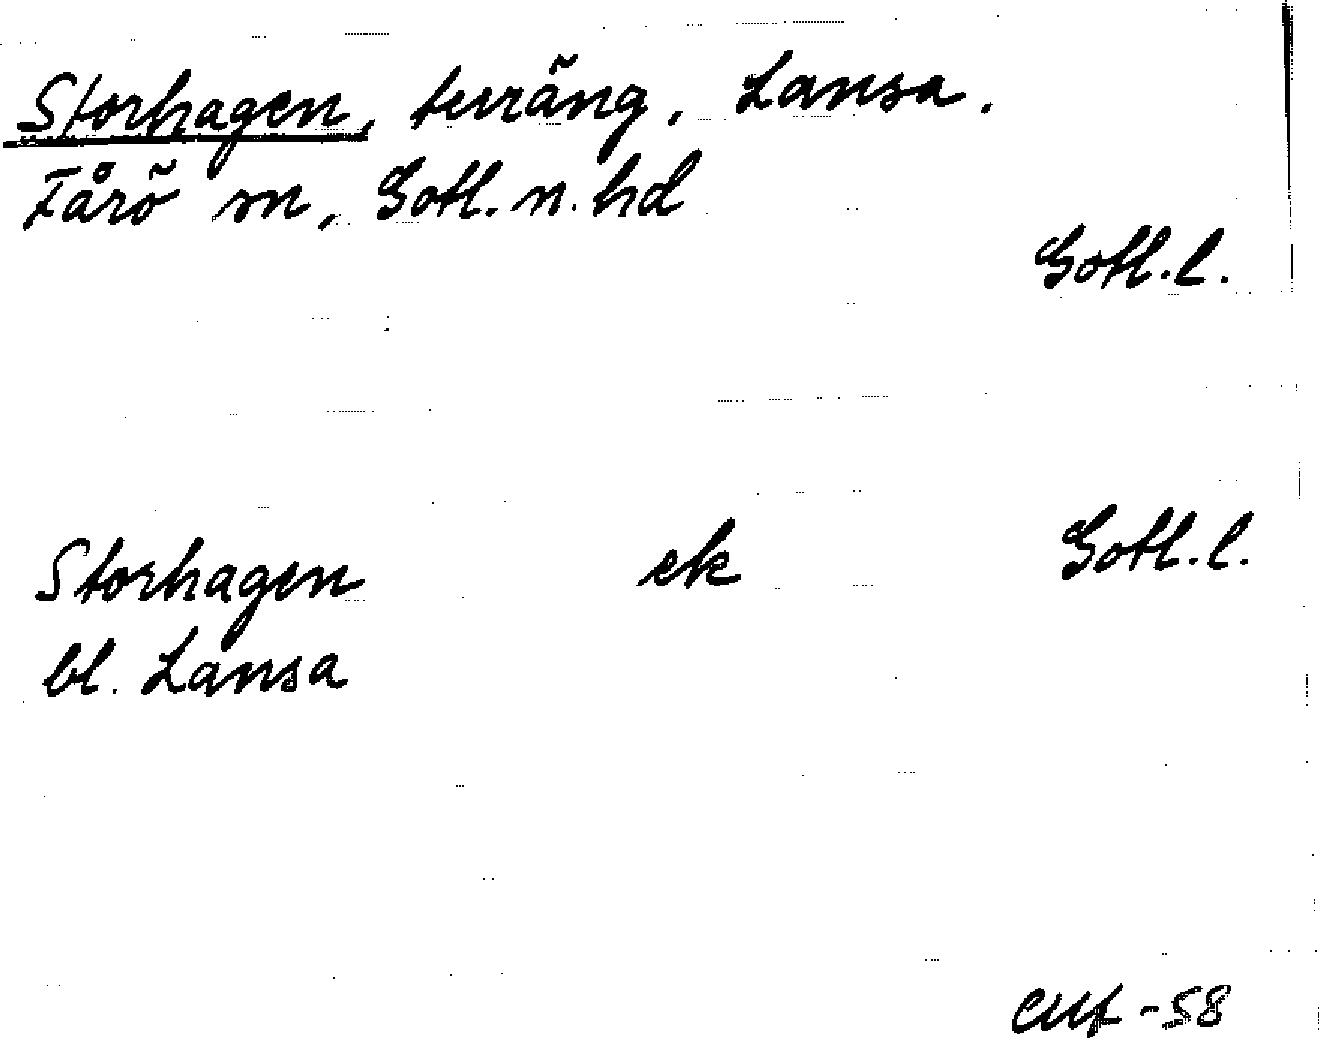 Storhagen, terräng, Lansa.
Fårö sn, Gotl. n. hd
Gotl. l.
Storhagen ek Gotl. l.
bl. Lansa
-58